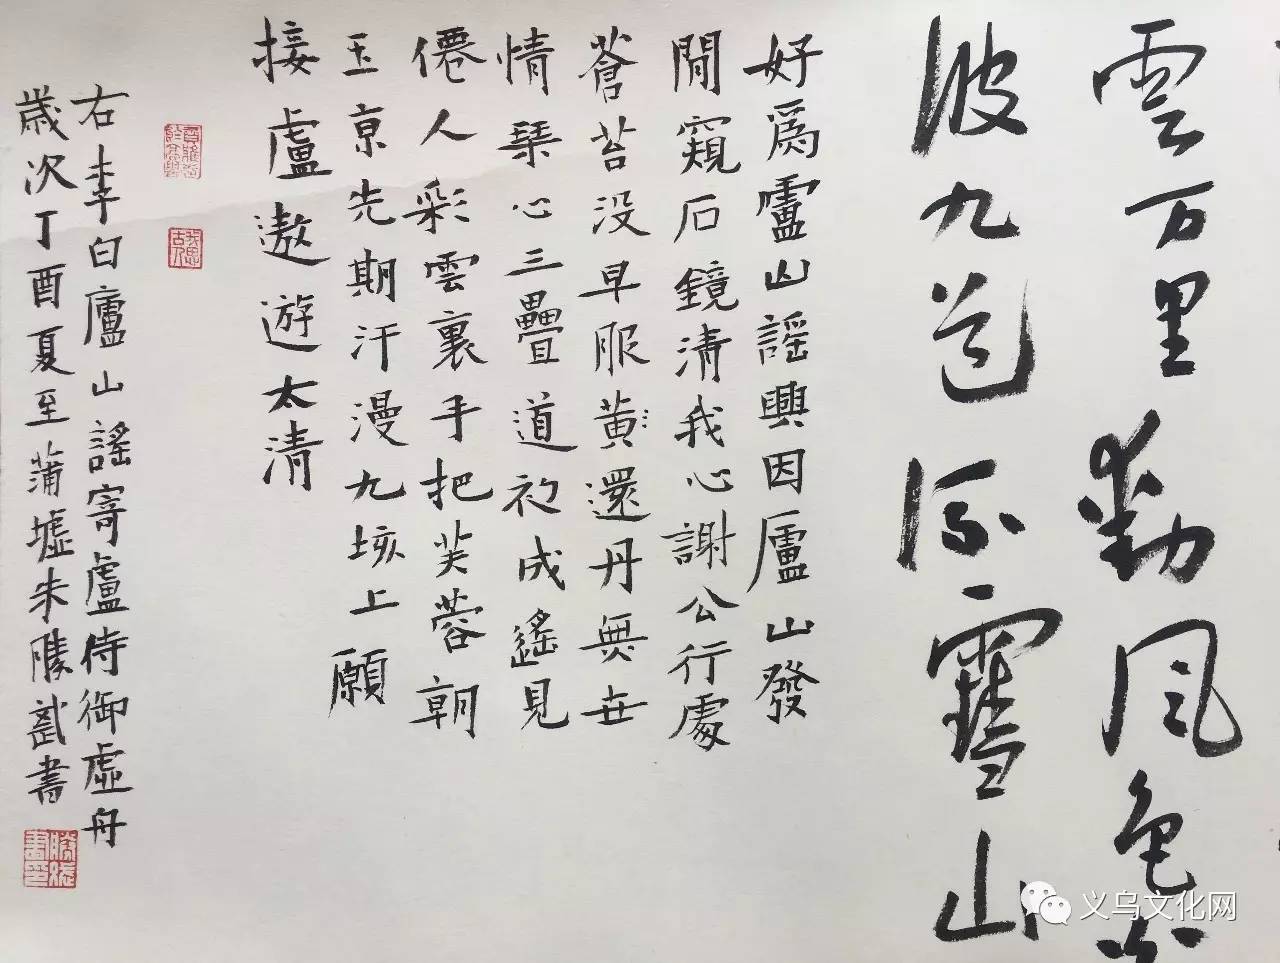 雲万里動風色
波九道流雪山
好爲廬山謡興因廬山發
閒窺石鏡清我心謝公行處
蒼苔没早服黄還丹無世
情琹心三疊道初成遥見
僊人彩雲裏手把芙蓉朝
玉京先期汗漫九垓上願
接盧遨遊太清
右李白廬山謡寄盧侍御虚舟
歲次丁酉夏至蒲墟朱勝武書
我思古人
义乌文化网